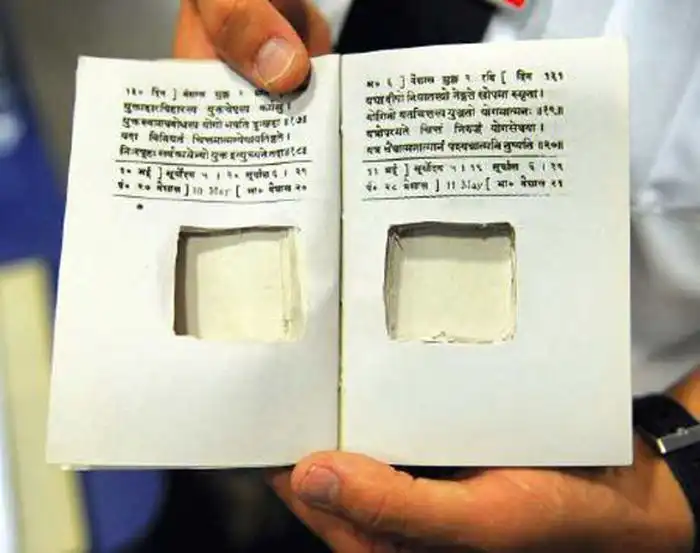 १३० दिन ] वैशाख शुक्ल १
युक्ताहारविहारस्य युक्तचेष्टस्य कर्मसु ।
युक्तस्वप्नावबोधस्य योगो भवति दुःखहा ॥१७॥
यदा विनियतं चित्तमात्मन्येवावतिष्ठते ।
निःस्पृहः सर्वकामेभ्यो युक्त इत्युच्यते तदा ॥१८॥
१० मई ] सूर्योदय ५ । २० सूर्यास्त ६ । २१
पं० २७ वैशाख ] 10 May [ भा० वैशाख २०
अ० ६ ] वैशाख शुक्ल २ रवि [ दिन १३१
यथा दीपो निवातस्थो नेङ्गते सोपमा स्मृता ।
योगिनो यतचित्तस्य युञ्जतो योगमात्मनः ॥१९॥
यत्रोपरमते चित्तं निरुद्धं योगसेवया ।
यत्र चैवात्मनात्मानं पश्यन्नात्मनि तुष्यति ॥२०॥
११ मई ] सूर्योदय ५ । १९ सूर्यास्त ६ । २१
पं० २८ वैशाख ] 11 May [ भा० वैशाख २१